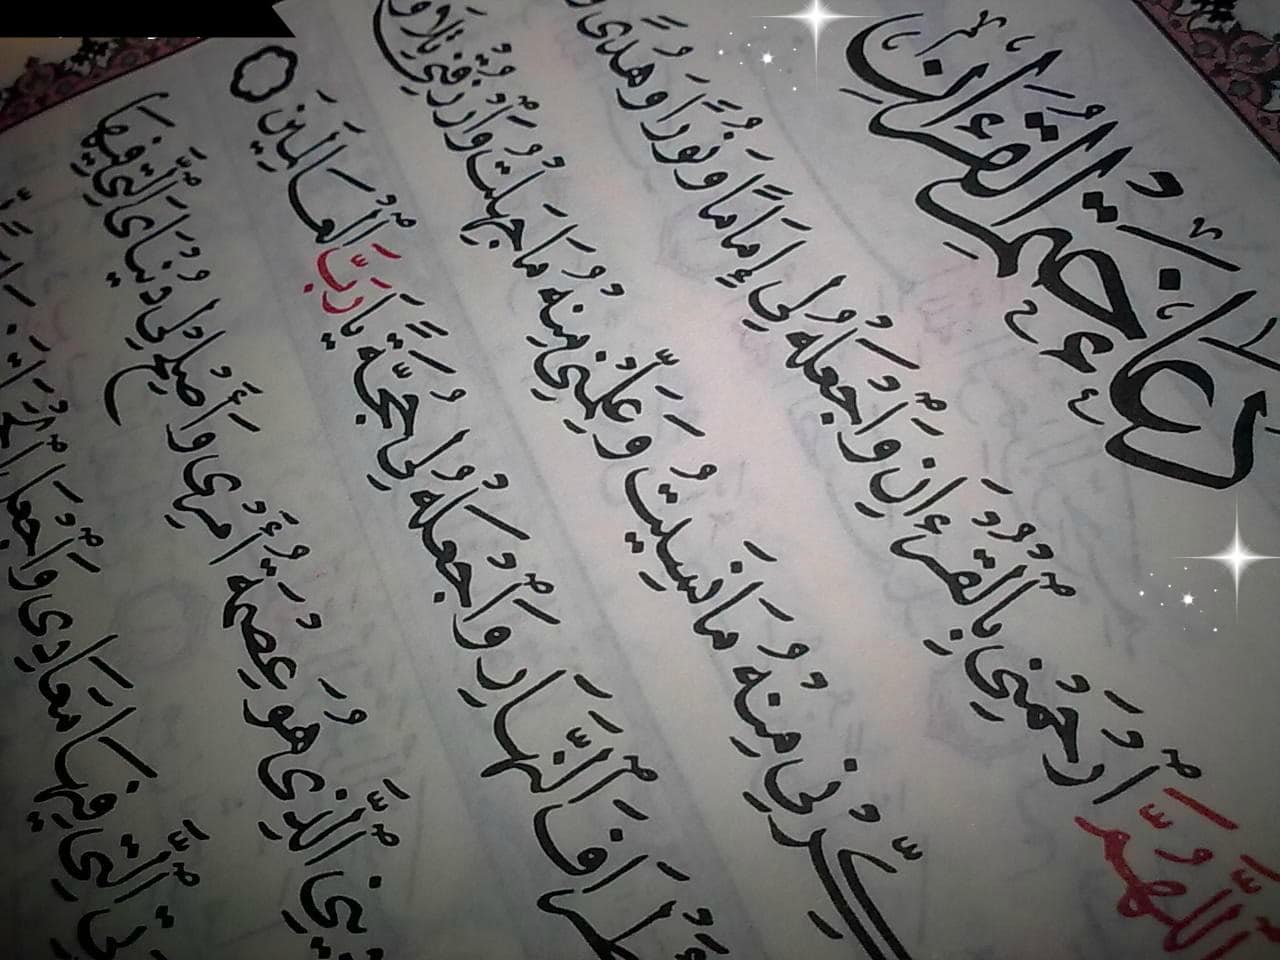 دُعَاءُ خَتْمِ الْقُرْءَانِ
اَللَّهُمَّ ارْحَمْنِي بِالْقُرْءَانِ وَاجْعَلْهُ لِي إِمَامًا وَنُورًا وَهُدًى وَ
ذَكِّرْنِي مِنْهُ مَا نَسِيتُ وَعَلِّمْنِي مِنْهُ مَا جَهِلْتُ وَارْزُقْنِي تِلَاوَ
وَأَطْرَافَ النَّهَارِ وَاجْعَلْهُ لِي حُجَّةً يَا رَبَّ الْعَالَمِينَ
دِينِي الَّذِي هُوَ عِصْمَةُ أَمْرِي وَأَصْلِحْ لِي دُنْيَايَ الَّتِي فِيهَا
الَّتِي فِيهَا مَعَادِي وَاجْعَلِ